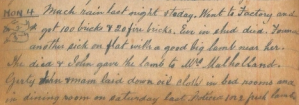 Nov 4. Much rain last night & today. Went to Factory and
got 100 bricks & 20 fire bricks. Ewe in shed died. Found
another sick on flat with a good big lamb near her.
She died & John gave the lamb to Mrs. Mulholland.
Gerty & man laid down oil cloth in bed rooms and
in dining room on Saturday last. Potatoes for